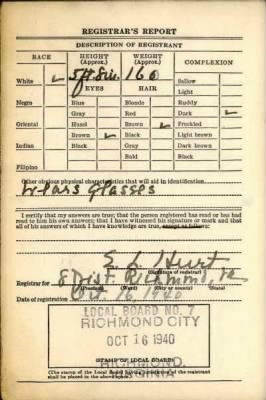 REGISTRAR'S REPORT
DESCRIPTION OF REGISTRANT
RACE HEIGHT (Approx.) WEIGHT (Approx.) COMPLEXION
White 5 ft 8 in. 160 Sallow
EYES HAIR Light
Negro Blue Blonde Ruddy
Gray Red Dark
Oriental Hazel Brown Freckled
Brown Black Light brown
Indian Black Gray Dark brown
Bald Black
Filipino
Other obvious physical characteristics that will aid in identification
Wears glasses
I certify that my answers are true; that the person registered has read or has had
read to him his own answers; that I have witnessed his signature or mark and that
all of his answers of which I have knowledge are true, except as follows:
E. L. Hurt
(Signature of registrar)
Registrar for 8 Dist Richmond, Va
(Precinct) (Ward) (City or county) (State)
Date of registration Oct 16 1940
LOCAL BOARD NO. 7
RICHMOND CITY
OCT 16 1940
RICHMOND,
VIRGINIA
STAMP OF LOCAL BOARD
(The stamp of the Local Board having jurisdiction of the registrant
shall be placed in the above space.)